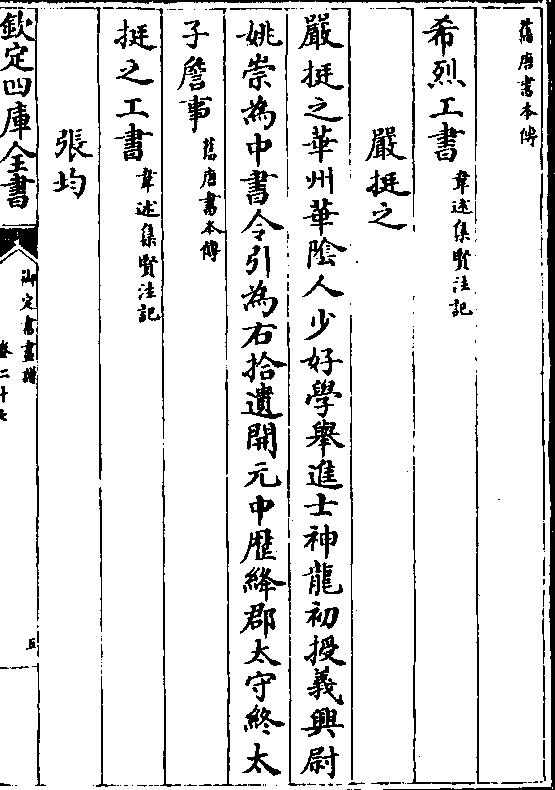 舊唐書本傳
希烈工書韋述集賢注記
嚴挺之
嚴挺之華州華陰人少好學舉進士神龍初授義興尉
姚崇為中書令引為右拾遺開元中歷絳郡太守終太
子詹事舊唐書本傳
挺之工書韋述集賢注記
張均
欽定四庫全書
御定書畫譜
卷二十七
五